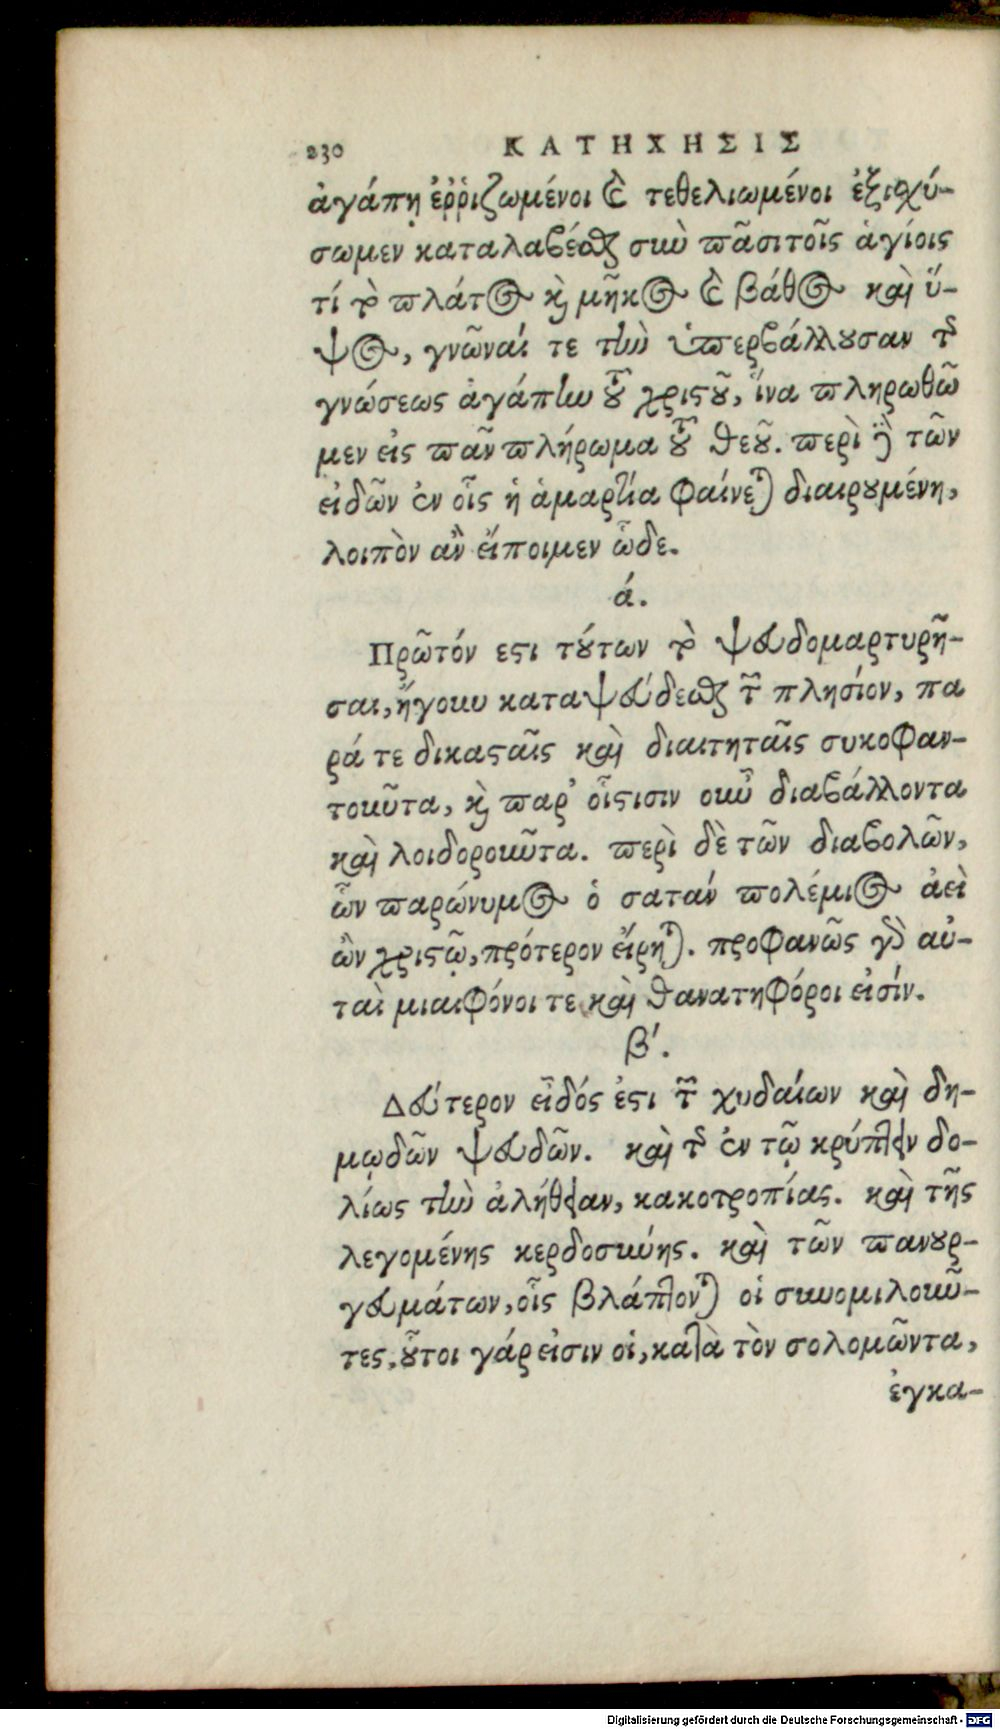 230 ΚΑΤΗΧΗΣΙΣ
ἀγάπῃ ἐῤῥιζωμένοι καὶ τεθελιωμένοι ἐξισχύ-
σωμεν καταλαβέσθαι σὺν πᾶσι τοῖς ἁγίοις
τί τὸ πλάτος καὶ μῆκος καὶ βάθος καὶ ὕ-
ψος, γνῶναί τε τὴν ὑπερβάλλουσαν τῆς
γνώσεως ἀγάπην τοῦ χριστοῦ, ἵνα πληρωθῶ
μεν εἰς πᾶν πλήρωμα τοῦ θεοῦ. περὶ δὲ τῶν
εἰδῶν ἐν οἷς ἡ ἁμαρτία φαίνεται διαιρουμένη,
λοιπὸν ἂν εἴποιμεν ὧδε.
ά.
Πρῶτόν εστι τούτων τὸ ψευδομαρτυρῆ-
σαι, ἤγουν καταψεύδεσθαι τῶν πλησίον, πα
ρά τε δικασταῖς καὶ διαιτηταῖς συκοφαν-
τοῦντα, καὶ παρ᾽ οἷστισιν οὖν διαβάλλοντα
καὶ λοιδοροῦντα. περὶ δὲ τῶν διαβολῶν,
ὧν παρώνυμος ὁ σατάν πολέμιος ἀεὶ
ὢν χριστῷ, πρότερον εἴρηται. προφανῶς γὰρ αὐ-
ταὶ μιαιφόνοι τε καὶ θανατηφόροι εἰσίν.
β΄.
Δεύτερον εἶδός ἐστι τῶν χυδαίων καὶ δη-
μωδῶν ψευδῶν. καὶ τῆς ἐν τῷ κρύπτειν δο-
λίως τὴν ἀλήθειαν, κακοτροπίας. καὶ τῆς
λεγομένης κερδοσύνης. καὶ τῶν πανουρ-
γευμάτων, οἷς βλάπτονται οἱ συνομιλοῦν-
τες, οὗτοι γάρ εἰσιν οἱ, κατὰ τὸν σολομῶντα,
ἐγκα-
Digitalisierung gefördert durch die Deutsche Forschungsgemeinschaft - DFG